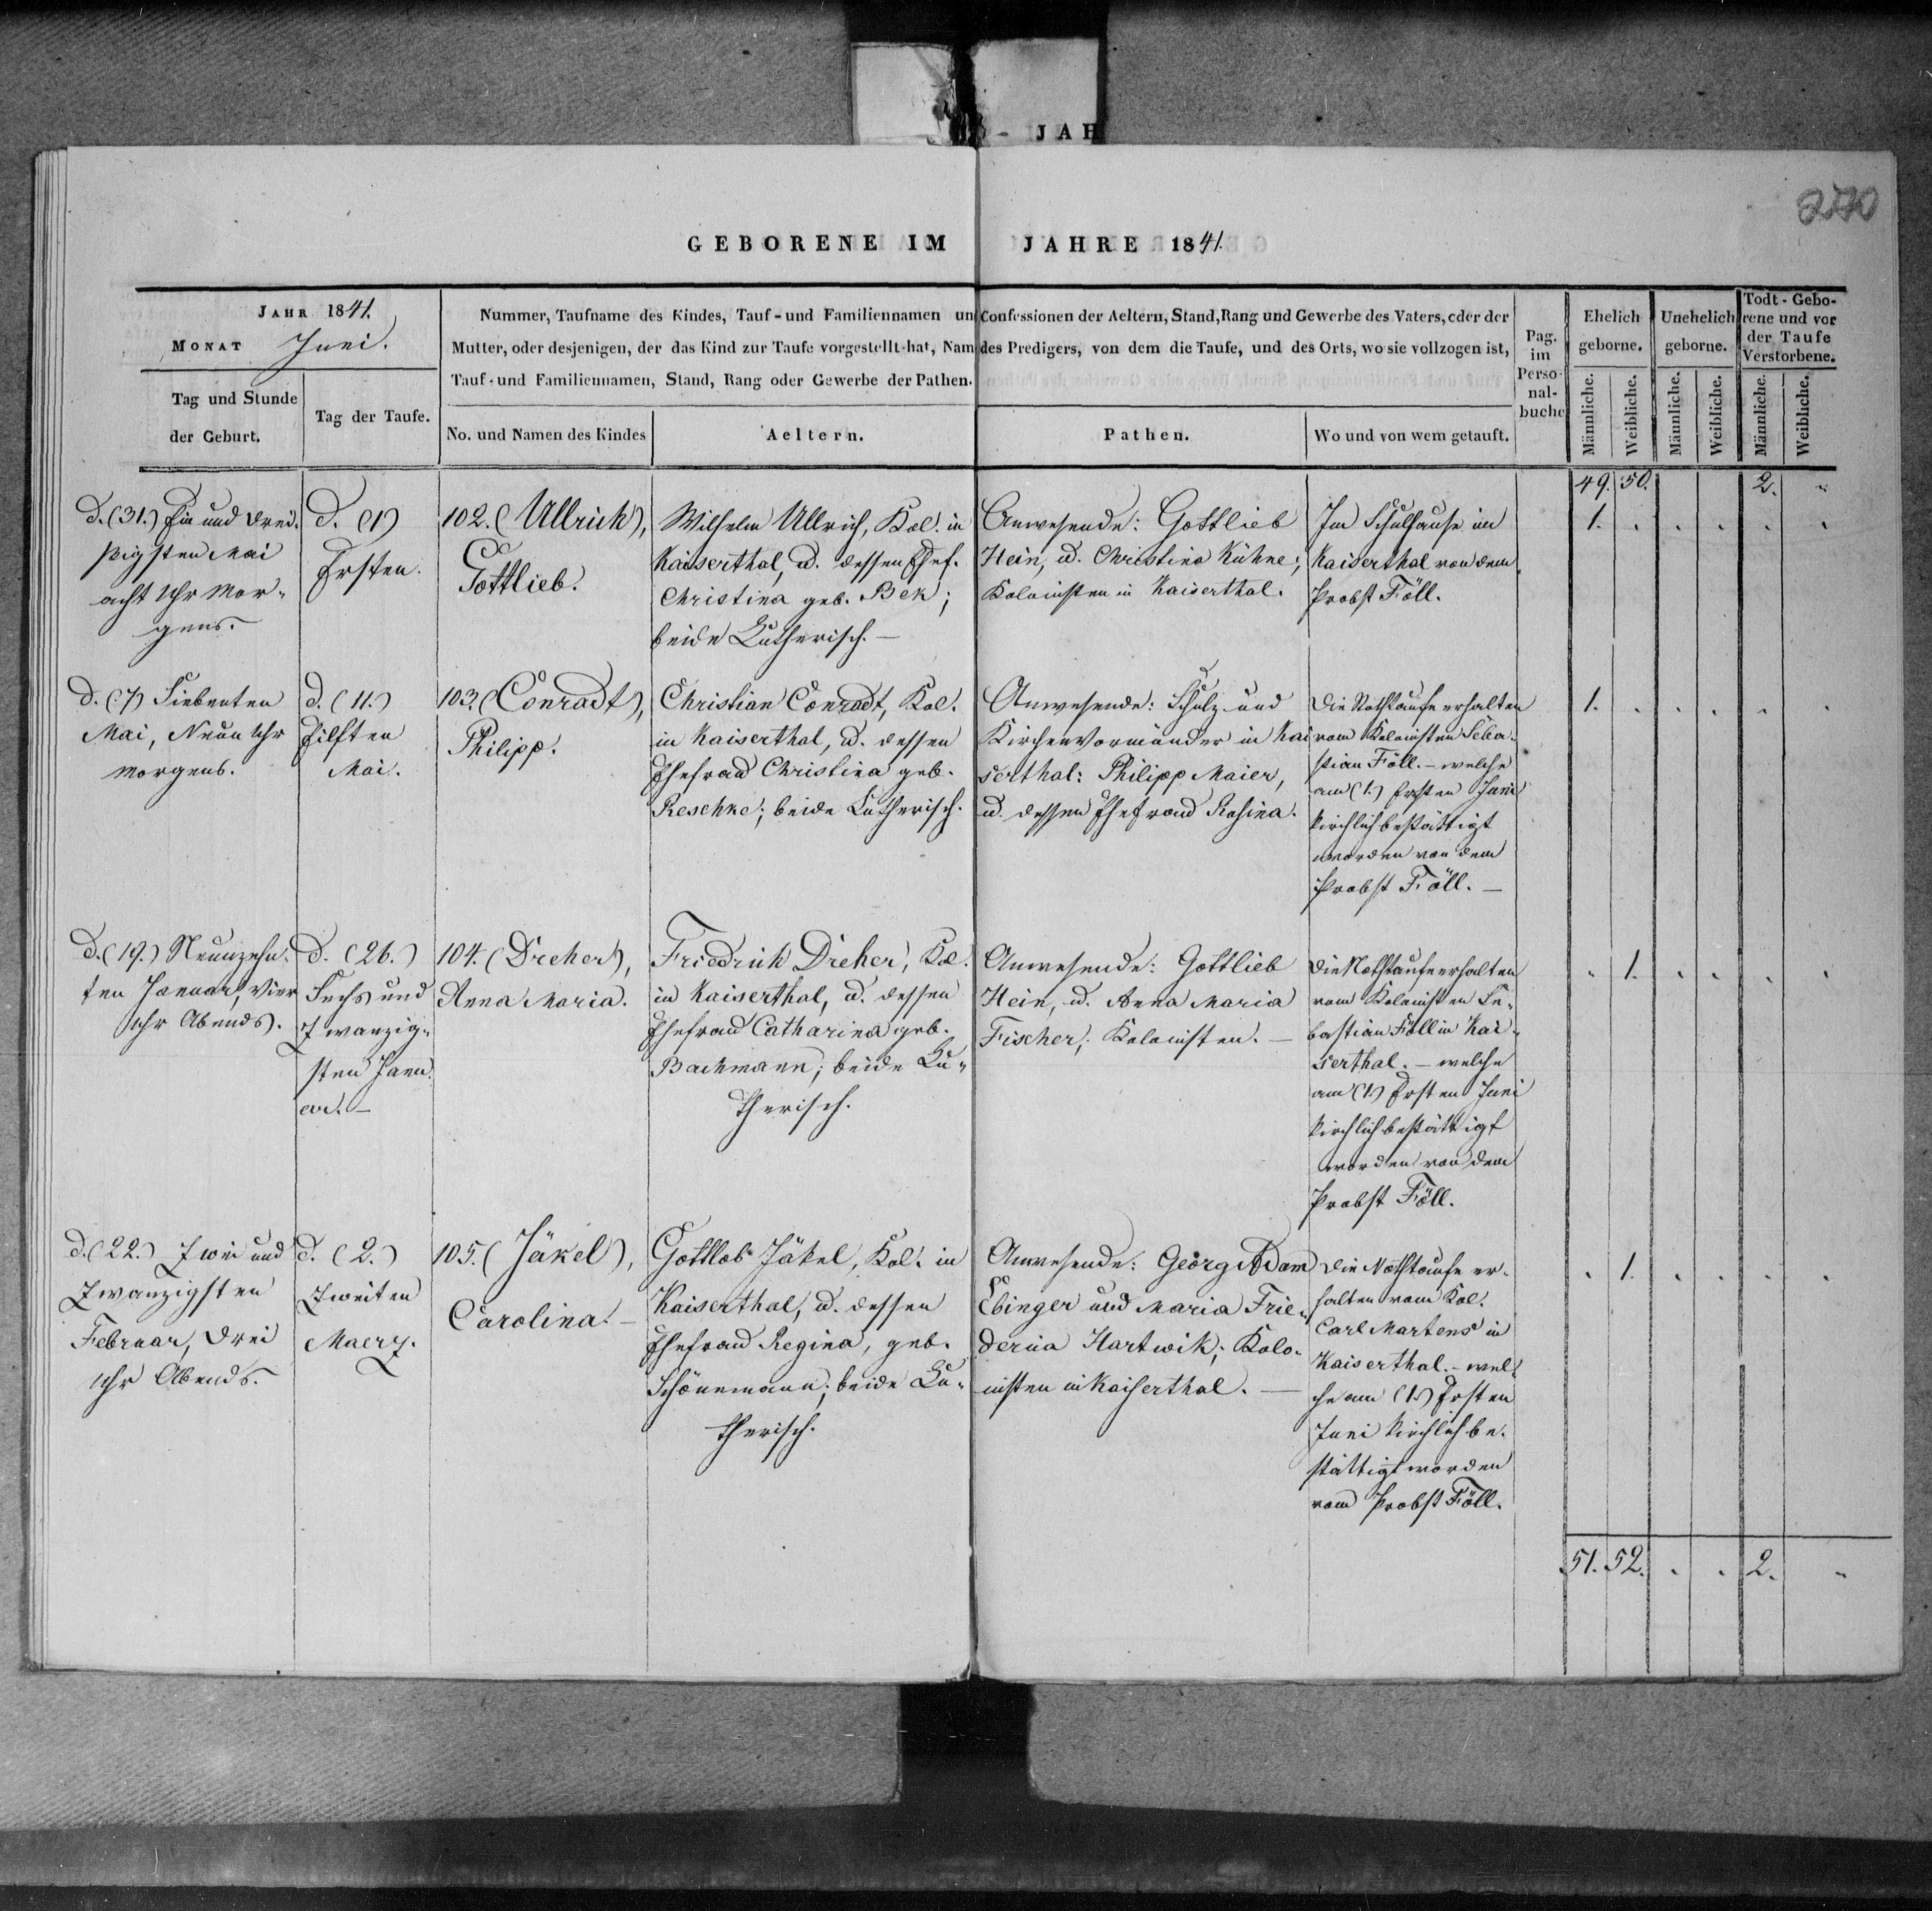 JAH
270
GEBORENE IM JAHRE 1841.
JAHR 1841.
MONAT Juni.
Tag und Stunde
der Geburt.
Tag der Taufe.
Nummer, Taufname des Kindes, Tauf- und Familiennamen und Confessionen der Aeltern, Stand, Rang und Gewerbe des Vaters, oder der
Mutter, oder desjenigen, der das Kind zur Taufe vorgestellt hat, Nam des Predigers, von dem die Taufe, und des Orts, wo sie vollzogen ist,
Tauf- und Familiennamen, Stand, Rang oder Gewerbe der Pathen.
No. und Namen des Kindes
Aeltern.
Pathen.
Wo und von wem getauft.
Pag.
im
Perso-
nal-
buche
Ehelich
geborne.
Unehelich
geborne.
Todt-Gebo-
rene und vor
der Taufe
Verstorbene.
Männliche.
Weibliche.
Männliche.
Weibliche.
Männliche.
Weibliche.
49. 50. 2. "
d. (31.) Ein und drei-
ßigsten Mai
acht Uhr Mor-
gens.
d. (1)
Ersten.
102. (Ullrich),
Gottlieb.
Wilhelm Ullrich, Kol. in
Kaiserthal, u. dessen Ehef.
Christina geb. Bek;
beide Lutherisch. –
Anwesende: Gottlieb
Hein, u. Christina Kühne;
Kolonisten in Kaiserthal.
Im Schulhause in
Kaiserthal von dem
Probst Föll.
1. . . . . .
d. (7) Siebenten
Mai, Neun Uhr
Morgens.
d. (11.)
Eilften
Mai.
103. (Conradt),
Philipp.
Christian Conradt, Kol.
in Kaiserthal, u. dessen
Ehefrau Christina geb.
Reschke; beide Lutherisch.
Anwesende: Schulz und
Kirchenvormünder in Kai
serthal: Philipp Maier,
u. dessen Ehefrau Rosina.
Die Nothtaufe erhalten
vom Kolonisten Seba-
stian Föll. – welche
am (1.) Ersten Juni
kirchlich bestättigt
worden von dem
Probst Föll. –
1. . . . . .
d. (19.) Neunzehn-
ten Januar, Vier
Uhr Abends.
d. (26.)
Sechs und
Zwanzig-
sten Janu-
ar. –
104. (Dreher),
Anna Maria.
Friedrich Dreher, Kol.
in Kaiserthal, u. dessen
Ehefrau Catharina geb.
Bachmann; beide Lu-
therisch.
Anwesende: Gottlieb
Hein, u. Anna Maria
Fischer; Kolonisten. –
Die Nothtaufe erhalten
vom Kolonisten Se-
bastian Föll in Kai-
serthal. – welche
am (1.) Ersten Juni
kirchlich bestättigt
worden von dem
Probst Föll.
. 1. . . . .
d. (22.) Zwei und
Zwanzigsten
Februar, Drei
Uhr Abends.
d. (2.)
Zweiten
Maerz.
105. (Jäkel),
Carolina. –
Gottlob Jäkel, Kol. in
Kaiserthal, u. dessen
Ehefrau Regina, geb.
Schönemann; beide Lu-
therisch.
Anwesende: Georg Adam
Ebinger und Maria Frie-
derica Hartwik; Kolo-
nisten in Kaiserthal. –
Die Nothtaufe er-
halten vom Kol.
Carl Martens in
Kaiserthal. – wel-
che am (1.) Ersten
Juni kirchlich be-
stättigt worden
vom Probst Föll.
. 1. . . . .
51. 52. . . 2. "